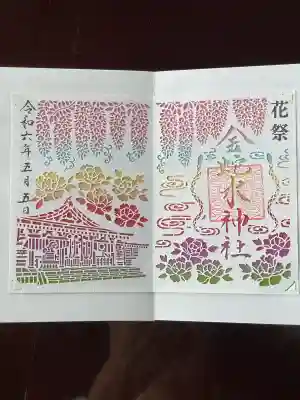 花祭
金蛇水神社
令和六年五月五日